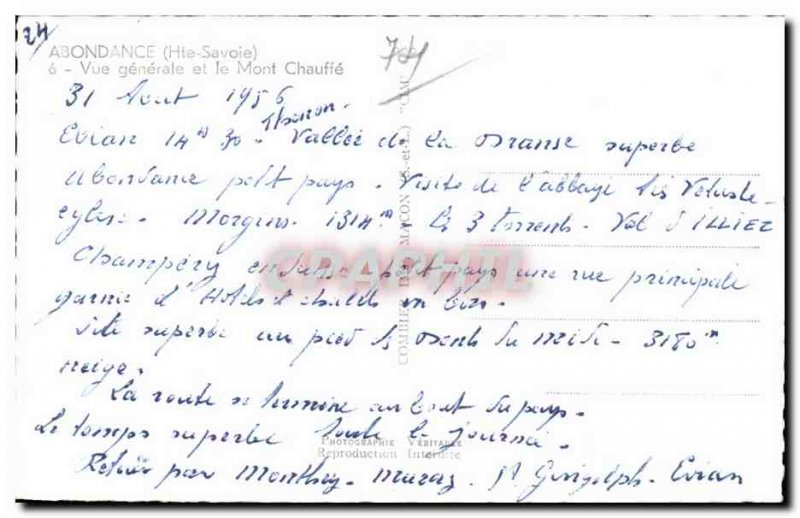 24
ABONDANCE (Hte-Savoie)
6 - Vue générale et le Mont Chauffé
74
31 Aout 1956
Thonon.
Evian 14h 30 - Vallée de la Dranse superbe
Abondance petit pays. Visite de l'abbaye très vétuste
eglise. Morgins. 1314m. Les 3 torrents. Val d'ILLIEZ
Champéry petit pays une rue principale
garnie d'Hotels et chalets en bois.
Site superbe au pied des Dents du midi. 3180m
neige.
La route se termine au bout du pays.
Le temps superbe toute la journée.
Retour par Monthey. Muraz. St Gingolph. Evian
COMBIER MACON (S.-et-L.) "CIM"
PHOTOGRAPHIE VÉRITABLE
Reproduction Interdite
CPAPHIL